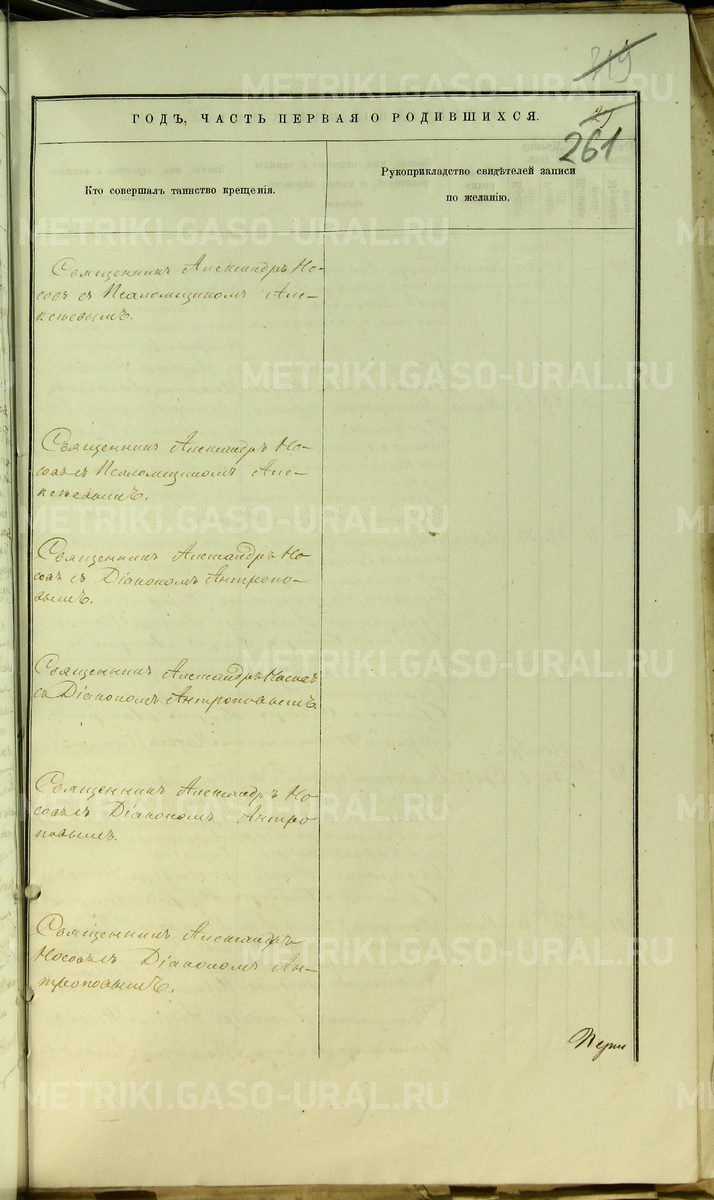 319
ГОДЪ, ЧАСТЬ ПЕРВАЯ О РОДИВШИХСЯ.
261
Кто совершалъ таинство крещенія.
Рукоприкладство свидѣтелей записи
по желанію.
Священникъ Александръ Но-
совъ съ Псаломщикомъ Але-
ксѣевымъ.
Священникъ Александръ Но-
совъ съ Псаломщикомъ Але-
ксѣевымъ.
Священникъ Александръ Но
совъ съ Діакономъ Антропо-
вымъ.
Священникъ Александръ Носовъ
съ Діакономъ Антроповымъ.
Священникъ Александръ Но
совъ съ Діакономъ Антро
повымъ.
Священникъ Александръ
Носовъ съ Діакономъ Ан-
троповымъ.
METRIKI.GASO-URAL.RU